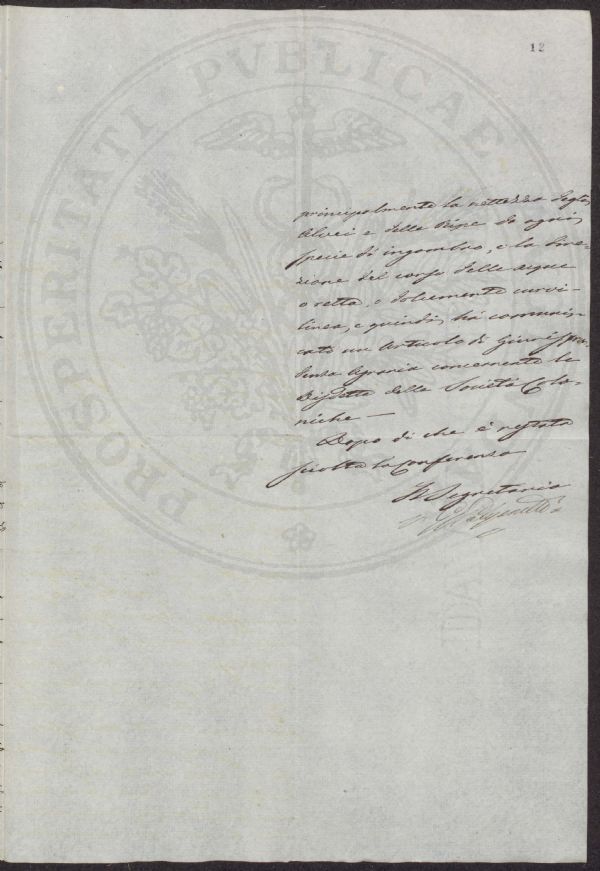 12
PROSPERITATI PVBLICAE
principalmente la nettezza degli
Alvei e delle Ripe da ogni
specie di ingombro, e la dire-
zione del corso delle acque
o retta, o dolcemente curvi-
linea, e quindi ha communi-
cato un Articolo di Giurispru-
denza Agraria concernente le
Disdette delle Società Colo-
niche —
Dopo di che è restata
sciolta la Conferenza
Il Segretario